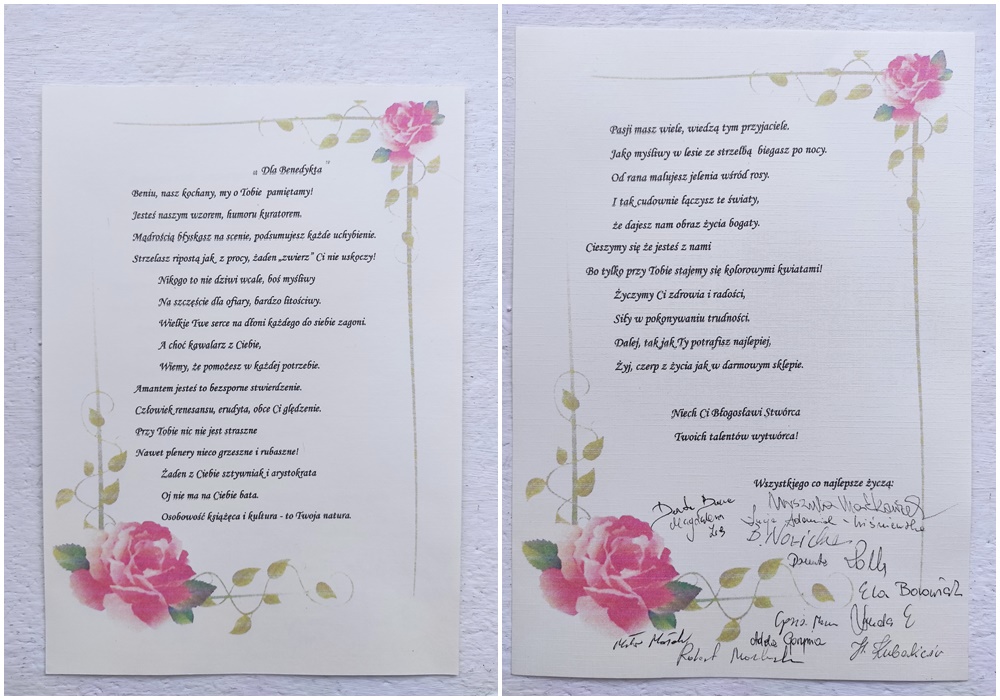 „ Dla Benedykta ”
Beniu, nasz kochany, my o Tobie pamiętamy!
Jesteś naszym wzorem, humoru kuratorem.
Mądrością błyskasz na scenie, podsumujesz każde uchybienie.
Strzelasz ripostą jak z procy, żaden „zwierz” Ci nie uskoczy!
Nikogo to nie dziwi wcale, boś myśliwy
Na szczęście dla ofiary, bardzo litościwy.
Wielkie Twe serce na dłoni każdego do siebie zagoni.
A choć kawalarz z Ciebie,
Wiemy, że pomożesz w każdej potrzebie.
Amantem jesteś to bezsporne stwierdzenie.
Człowiek renesansu, erudyta, obce Ci ględzenie.
Przy Tobie nic nie jest straszne
Nawet plenery nieco grzeszne i rubaszne!
Żaden z Ciebie sztywniak i arystokrata
Oj nie ma na Ciebie bata.
Osobowość książęca i kultura - to Twoja natura.
Pasji masz wiele, wiedzą tym przyjaciele.
Jako myśliwy w lesie ze strzelbą biegasz po nocy.
Od rana malujesz jelenia wśród rosy.
I tak cudownie łączysz te światy,
że dajesz nam obraz życia bogaty.
Cieszymy się że jesteś z nami
Bo tylko przy Tobie stajemy się kolorowymi kwiatami!
Życzymy Ci zdrowia i radości,
Siły w pokonywaniu trudności.
Dalej, tak jak Ty potrafisz najlepiej,
Żyj, czerp z życia jak w darmowym sklepie.
Niech Ci Błogosławi Stwórca
Twoich talentów wytwórca!
Wszystkiego co najlepsze życzą:
Magdalena
Danuta
Ela
Robert